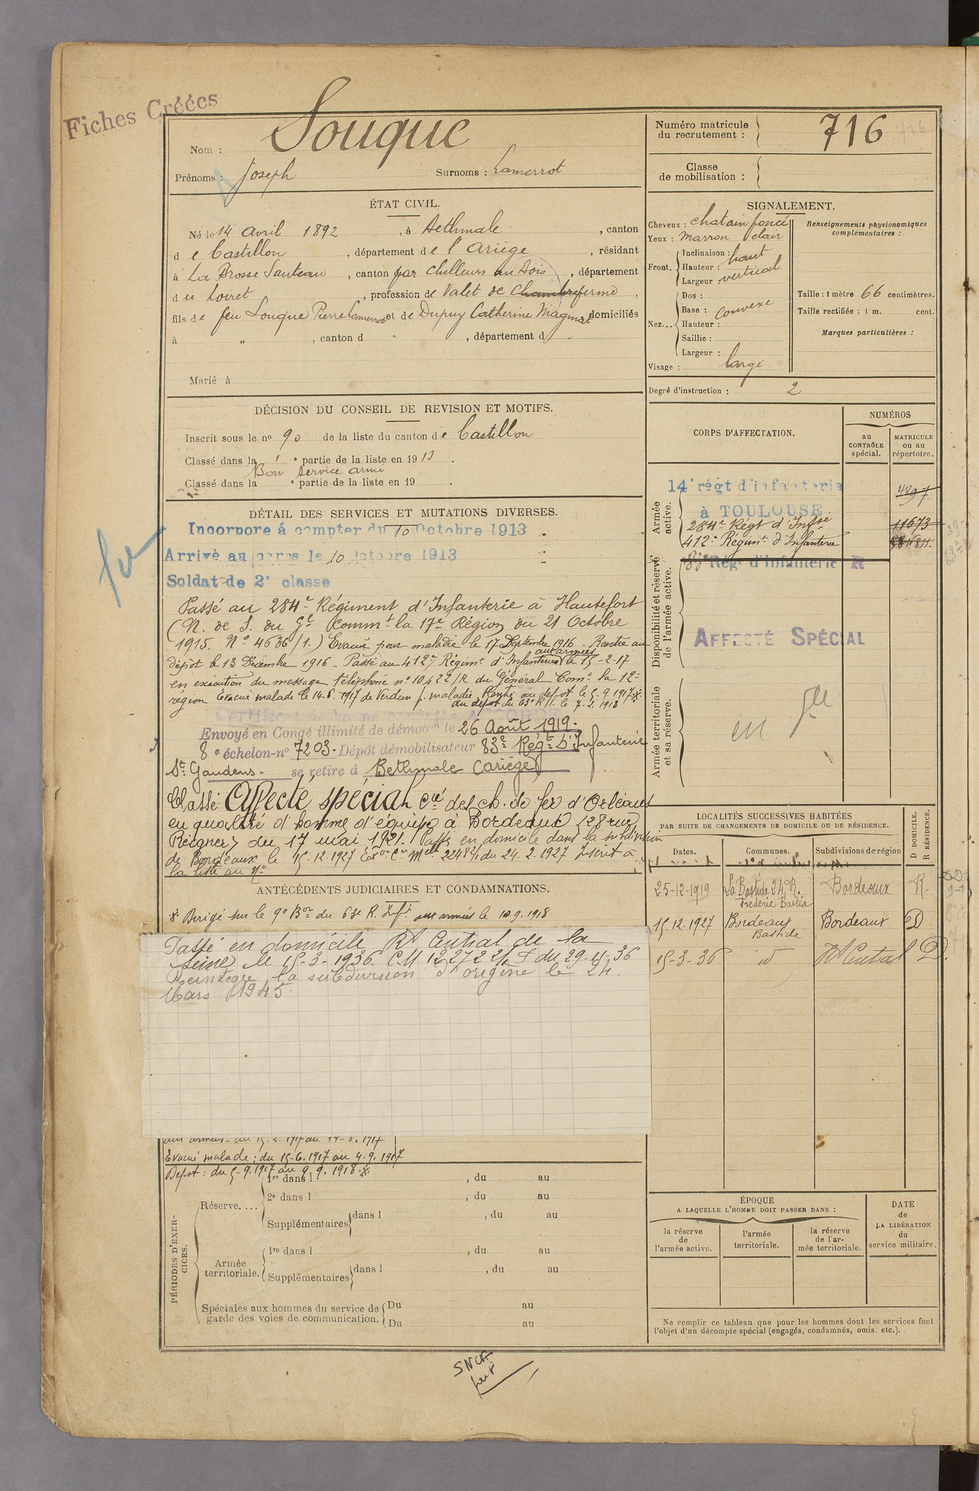 Fiches Créées
Nom : Souque
Prénoms : Joseph Surnoms : Lamerrot
Numéro matricule du recrutement : 716
Classe de mobilisation :
ÉTAT CIVIL.
Né le 14 avril 1892, à Bethmale, canton
de Castillon, département de l'Ariège, résidant
à La Brosse Santeau, canton par Chilleurs au Bois, département
du Loiret, profession de Valet de Chambre ferme,
fils de feu Souque Pierre Lamerrot et de Dupuy Catherine Magnat domiciliés
à " , canton d " , département d "
Marié à
SIGNALEMENT.
Cheveux : chatain foncé
Yeux : marron clair
Front. Inclinaison : haut
Hauteur :
Largeur : vertical
Nez... Dos :
Base : convexe
Hauteur :
Saillie :
Largeur :
Visage : large
Renseignements physionomiques complémentaires :
Taille : 1 mètre 66 centimètres.
Taille rectifiée : 1 m. cent.
Marques particulières :
Degré d'instruction : 2
DÉCISION DU CONSEIL DE REVISION ET MOTIFS.
Inscrit sous le no 90 de la liste du canton de Castillon
Classé dans la 1 e partie de la liste en 1913.
Bon service armé
Classé dans la e partie de la liste en 19 .
CORPS D'AFFECTATION.
NUMÉROS
au CONTRÔLE spécial.
MATRICULE ou au répertoire.
Armée active.
14e régt d'infanterie à TOULOUSE 4897
284e Régt d'Infrie 11673
412e Régimt d'Infanterie
Disponibilité et réserve de l'armée active.
83e Rég. d'Infanterie R
AFFECTÉ SPÉCIAL
Armée territoriale et sa réserve.
DÉTAIL DES SERVICES ET MUTATIONS DIVERSES.
Incorporé à compter du 10 Octobre 1913
Arrivé au corps le 10 Octobre 1913
Soldat de 2e classe
Passé au 284e Régiment d'Infanterie à Hautefort
(N. de S. du Gl Commt la 17e Région du 21 Octobre
1915. No 4686/1.) Evacué pour maladie le 17 Septembre 1916. Rentré au
dépôt le 13 Décembre 1916 - Passé au 412e Régimt d'Infanterie aux armées le 15-2-17
en exécution du message téléphoné no 10422/R du Général Comt la 12e
région Evacué malade le 14.6.1917 de Verdun p. maladie Rentré au dépôt le 5.9.1917 x.
du dépôt du 63e R.I. le 7.2.1918
Envoyé en Congé illimité de démobon le 26 Août 1919.
8e échelon no 7203. Dépôt démobilisateur 83e Régt d'Infanterie
St Gaudens. se retire à Bethmale (Ariège)
Classé Affecté spécial Cie des ch. de fer d'Orléans
en qualité d'homme d'équipe à Bordeaux (28 rue
Reignier) du 17 mai 1921. Passé en domicile dans la subdivision
de Bordeaux le 15.12.1927
la liste au No
LOCALITÉS SUCCESSIVES HABITÉES
PAR SUITE DE CHANGEMENTS DE DOMICILE OU DE RÉSIDENCE.
Dates. Communes. Subdivisions de région D DOMICILE. R RÉSIDENCE.
25-12-1919 La Bastide 24 R. Frédéric Bastia Bordeaux R.
15.12.1927 Bordeaux Bastide Bordeaux D
15-3-36 d° R Central D.
ANTÉCÉDENTS JUDICIAIRES ET CONDAMNATIONS.
x Dirigé sur le 9e Bon du 63e R. Inf. aux armées le 10 9.1918
Passé en domicile Rt Central de la
Seine le 15-3-1936
Réintègre la subdivision d'origine le 24.
Mars 1945.
aux armées du 15-2-1917 au 14-6.1917
Evacué malade : du 15-6.1917 au 4-9.1917
Dépôt : du 5-9.1917 au 9 9.1918 x.
PÉRIODES D'EXERCICES.
Réserve.... 1re dans l , du au
2e dans l , du au
Supplémentaires dans l , du au
Armée territoriale. 1re dans l , du au
Supplémentaires dans l , du au
Spéciales aux hommes du service de garde des voies de communication. Du au
Du au
ÉPOQUE
A LAQUELLE L'HOMME DOIT PASSER DANS :
la réserve de l'armée active.
l'armée territoriale.
la réserve de l'armée territoriale.
DATE de LA LIBÉRATION du service militaire.
Ne remplir ce tableau que pour les hommes dont les services font
l'objet d'un décompte spécial (engagés, condamnés, omis. etc.).
SNCF